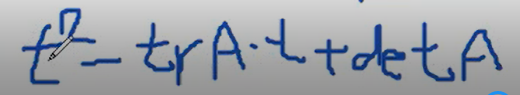 t² - trA·t + detA